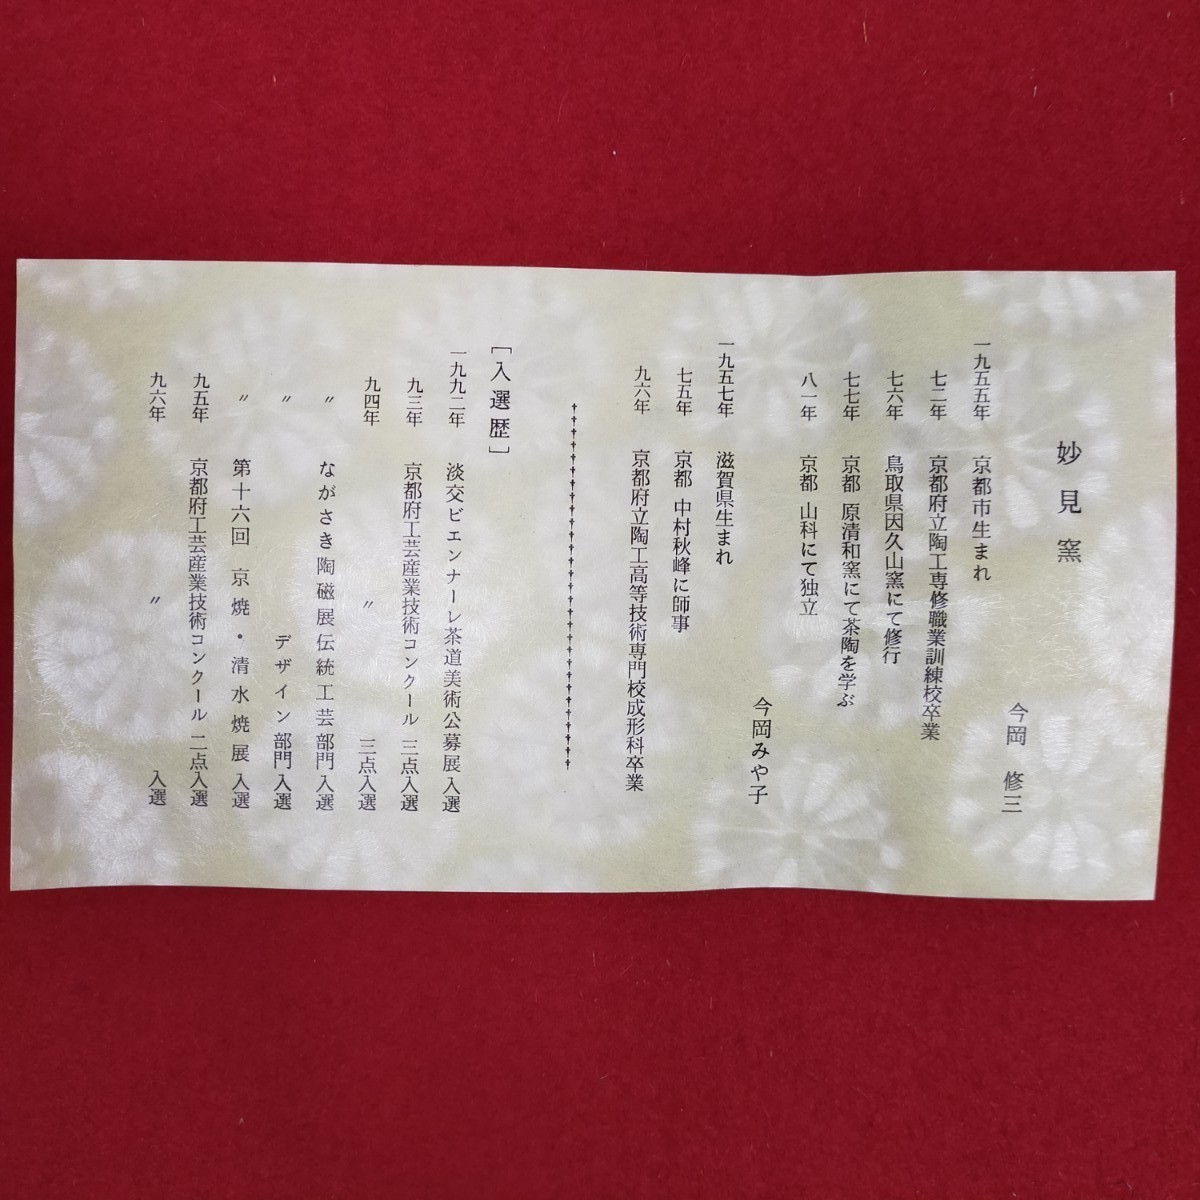 妙見窯
今岡 修三
一九五五年 京都市生まれ
七二年 京都府立陶工専修職業訓練校卒業
七六年 鳥取県因久山窯にて修行
七七年 京都 原清和窯にて茶陶を学ぶ
八一年 京都 山科にて独立
今岡みや子
一九五七年 滋賀県生まれ
七五年 京都 中村秋峰に師事
九六年 京都府立陶工高等技術専門校成形科卒業
［入選歴］
一九九二年 淡交ビエンナーレ茶道美術公募展入選
九三年 京都府工芸産業技術コンクール 三点入選
九四年 〃 三点入選
〃 ながさき陶磁展伝統工芸部門入選
〃 デザイン部門入選
〃 第十六回 京焼・清水焼展入選
九五年 京都府工芸産業技術コンクール 二点入選
九六年 〃 入選